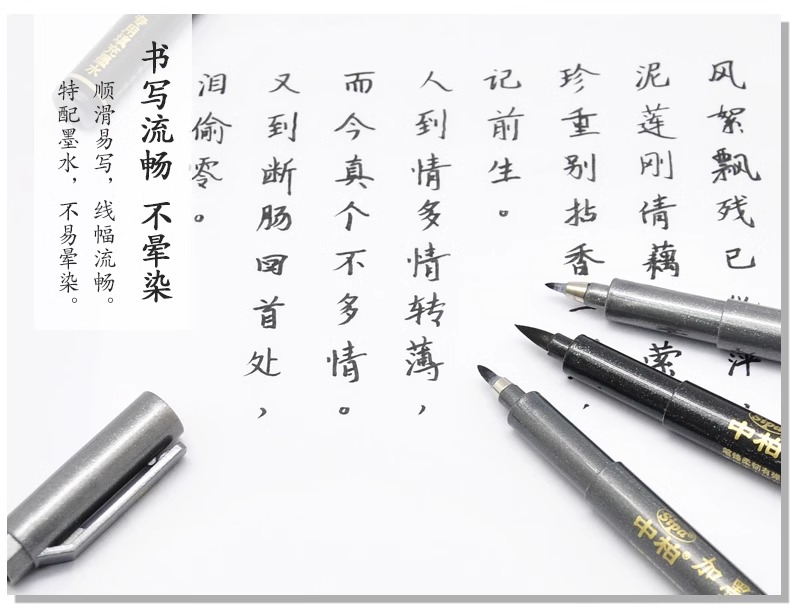 风絮飘残已萍，
泥莲刚倩藕萦
珍重别拈香一，
记前生。
人到情多情转薄，
而今真个不多情。
又到断肠回首处，
泪偷零。
书写流畅 不晕染
顺滑易写，线幅流畅。
特配墨水，不易晕染。
专用填充墨水
Sipa
中柏
Sipa®
中柏® 加墨